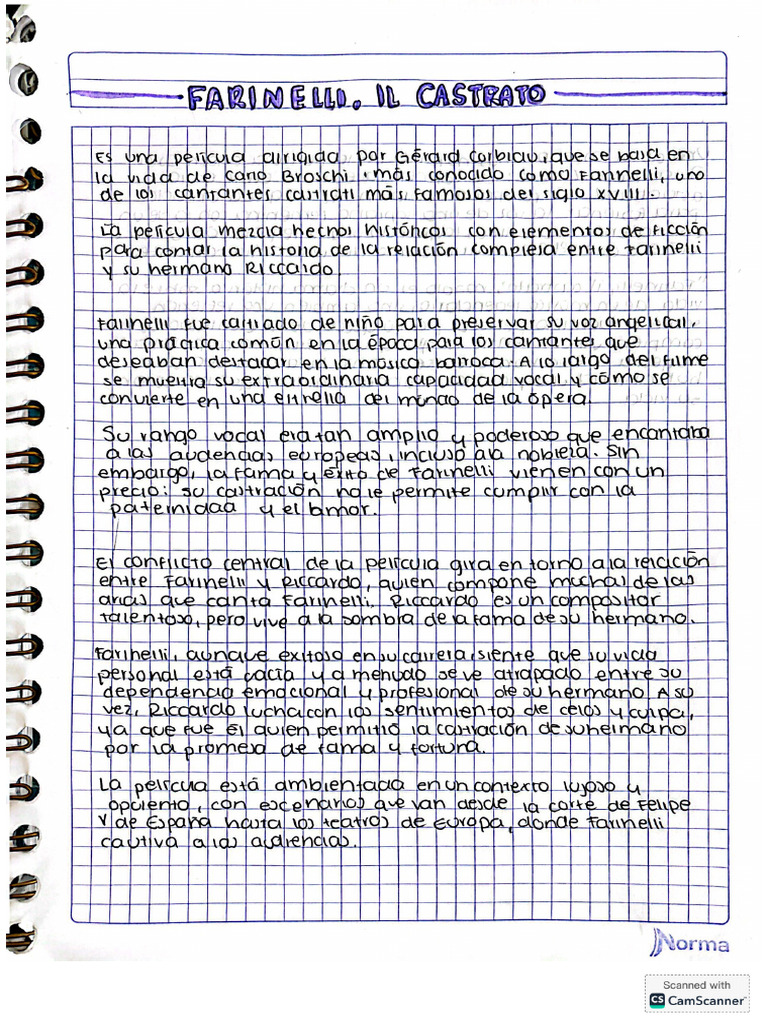 FARINELLI. IL CASTRATO
Es una película dirigida por Gérard Corbiau, que se basa en
la vida de Carlo Broschi. más conocido como Farinelli, uno
de los cantantes castrati más famosos del siglo XVIII.
La película mezcla hechos históricos con elementos de ficción
para contar la historia de la relación compleja entre Farinelli
y su hermano Riccardo.
Farinelli fue castrado de niño para preservar su voz angelical,
una práctica común en la época para los cantantes que
deseaban destacar en la música barroca. A lo largo del filme
se muestra su extraordinaria capacidad vocal y cómo se
convierte en una estrella del mundo de la ópera.
Su rango vocal era tan amplio y poderoso que encantaba
a las audiencias europeas, incluso a la nobleza. Sin
embargo, la fama y éxito de Farinelli vienen con un
precio: su castración no le permite cumplir con la
paternidad y el amor.
El conflicto central de la película gira en torno a la relación
entre Farinelli y Riccardo, quien compone muchas de las
arias que canta Farinelli. Riccardo es un compositor
talentoso, pero vive a la sombra de la fama de su hermano.
Farinelli, aunque exitoso en su carrera, siente que su vida
personal está vacía y a menudo se ve atrapado entre su
dependencia emocional y profesional de su hermano. A su
vez, Riccardo lucha con los sentimientos de celos y culpa,
ya que fue él quien permitió la castración de su hermano
por la promesa de fama y fortuna.
La película está ambientada en un contexto lujoso y
opulento, con escenarios que van desde la corte de Felipe
V de España hasta los teatros de Europa, donde Farinelli
cautiva a las audiencias.
Norma
Scanned with
CS CamScanner